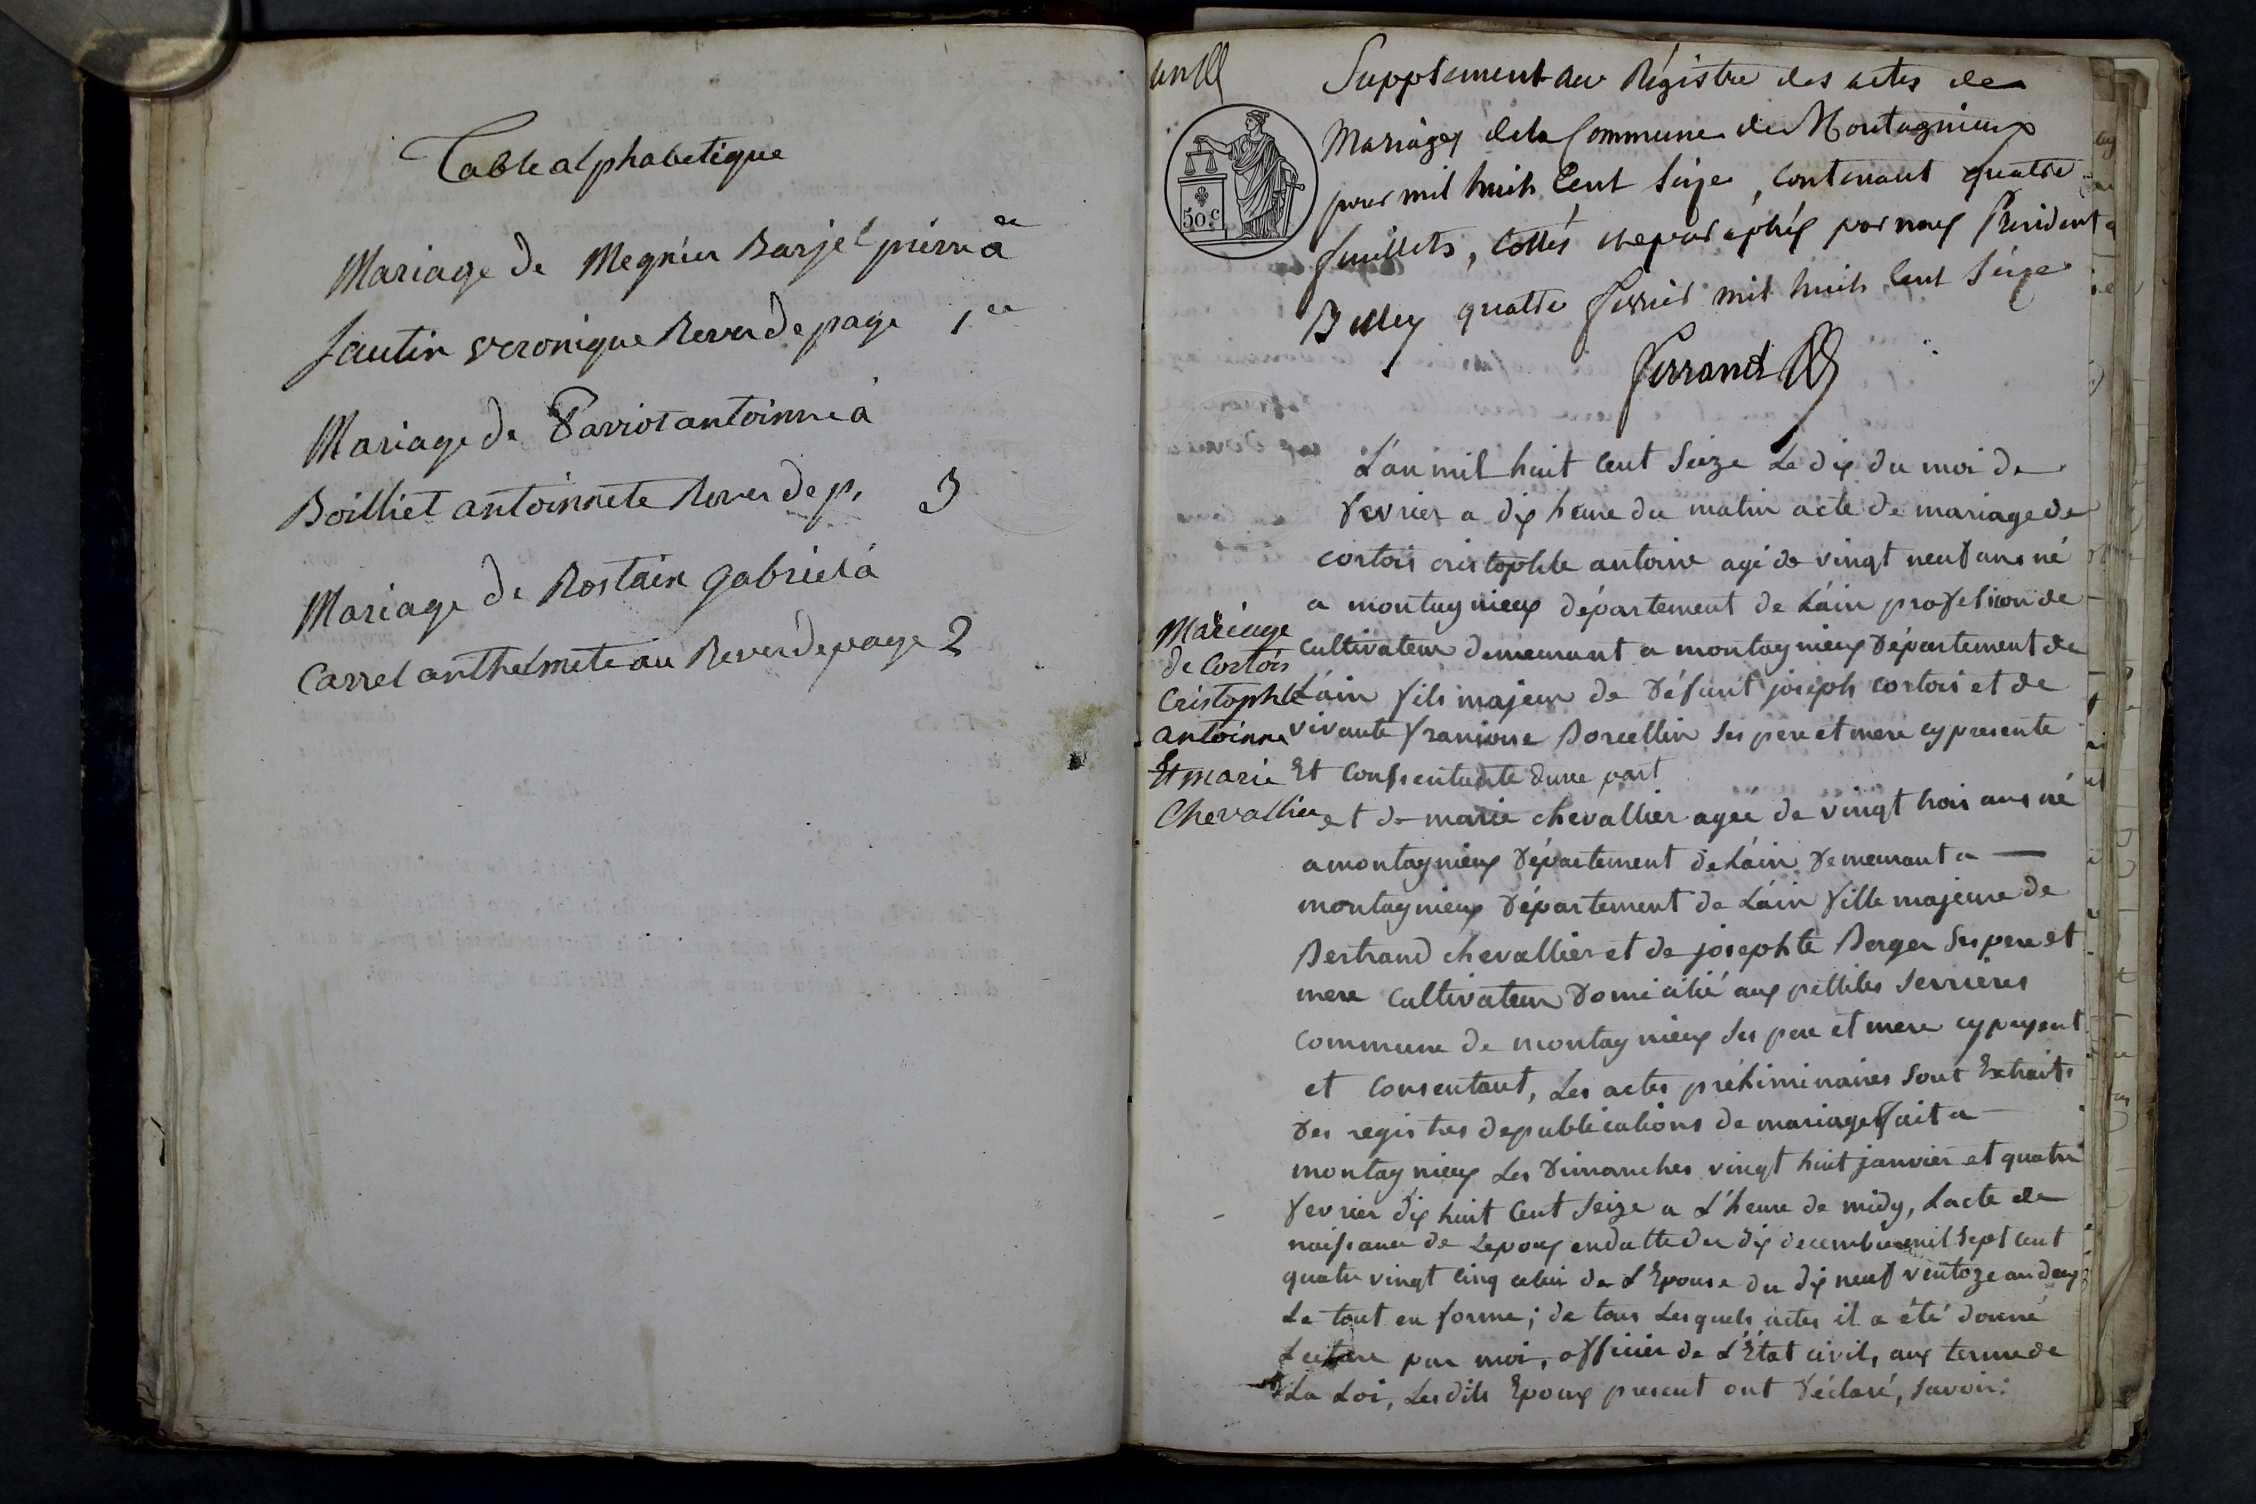 Table alphabetique
Mariage de Megnier Barjet pierre a
fautin veronique Rever de page 1ere
Mariage de Parriot antoinne a
Boilliet antoinnete Rever de p. 3
Mariage de Rostain gabriel a
Carrel anthelmete au Rever de page 2
un
Supplement au Régistre des actes de
Mariages de la Commune de Montagnieux
pour mil huit Cent Seize, contenant quatre
feuillets, cottés et paraphés par nous President
Belley quatre fevrier mil huit Cent Seize
ferrand
50.c
L'an mil huit Cent Seize Le dix du moi de
fevrier a dix heure du matin acte de mariage de
cortois cristophle antoine agé de vingt neuf ans né
a montagnieux département de L'ain profession de
cultivateur demeurant a montagnieux département de
L'ain fils majeur de défunt joseph cortois et de
vivante fransoise Borcellin ses pere et mere cy presente
Et Consentante dune part
Mariage
de Cortois
Cristophle
antoinne
Et marie
Chevallier
et de marie chevallier ageé de vingt trois ans né
a montagnieux département de L'ain demeurant a
montagnieux département de L'ain fille majeure de
Bertrand chevallier et de josephte Berger Ses pere et
mere cultivateur domicilié aux pettites Serrieres
commune de montagnieux Ses pere et mere cy present
et consentant, Les actes préliminaires Sont Extraits
des registres de publications de mariages fait a
montagnieux Les dimanches vingt huit janvier et quatre
fevrier dix huit Cent Seize a L'heure de midy, Lacte de
naissance de Lepoux en datte du dix decembre mil Sept Cent
quatre vingt Cinq celui de L'Epouse du dix neuf ventoze an deux
Le tout en forme; de tous Lesquels actes il a été donné
Lecture par moi, officier de L'État civil, aux terme de
La Loi, Lesdits Epoux present ont déclaré, Savoir: